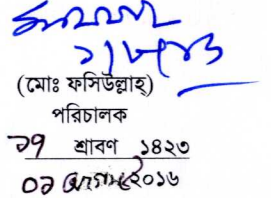 (মোঃ ফসিউল্লাহ্)
পরিচালক
১৭ শ্রাবণ ১৪২৩
০১ আগস্ট ২০১৬